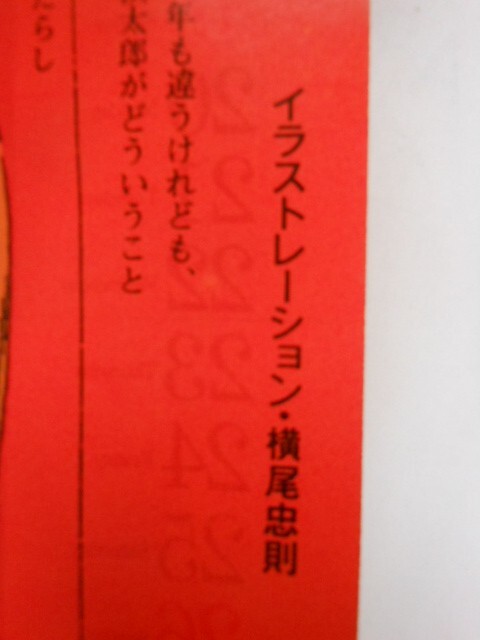 イラストレーション・横尾忠則
年も違うけれども、
太郎がどういうこと
たらし